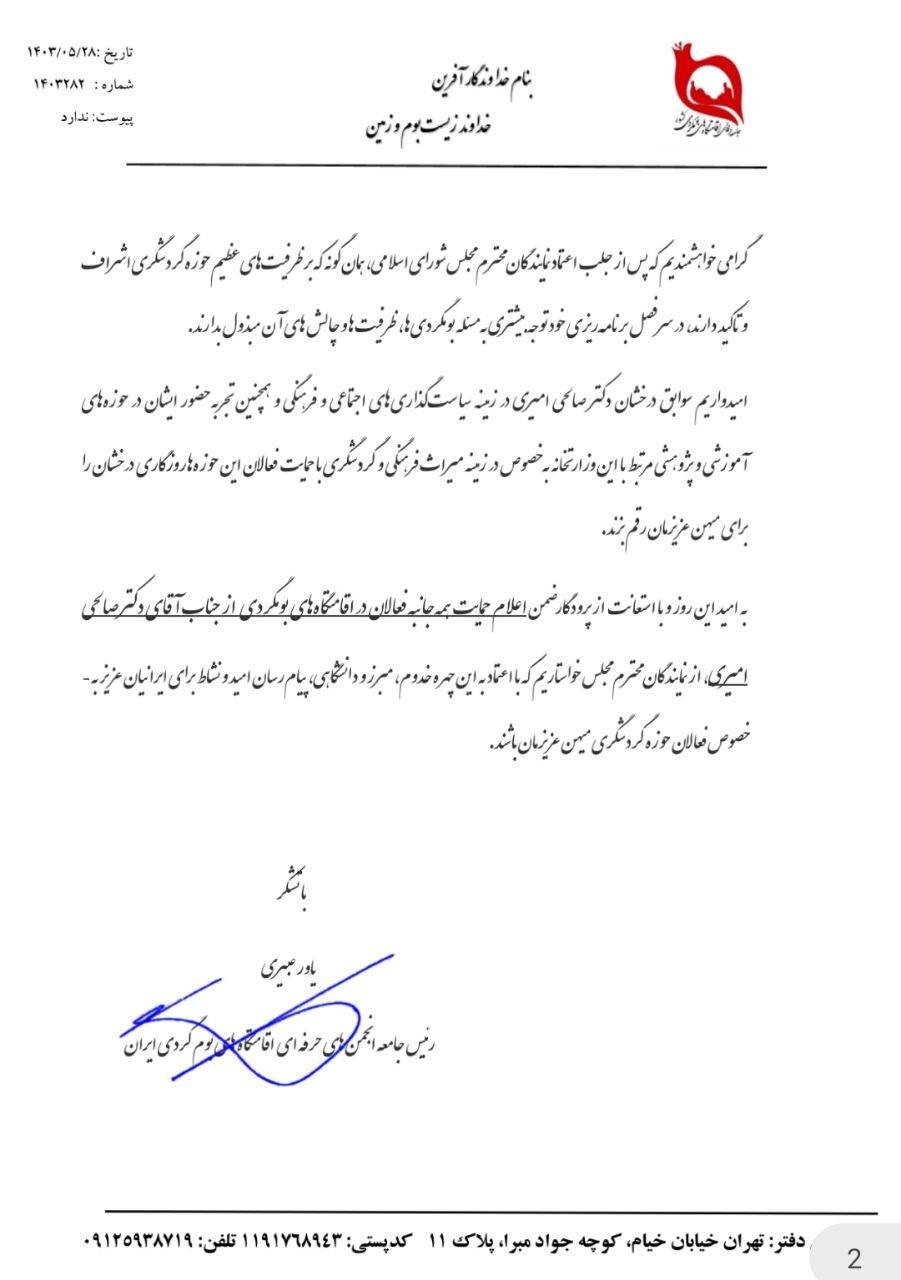 تاریخ :۱۴۰۳/۰۵/۲۸
شماره : ۱۴۰۳۲۸۲
پیوست: ندارد
بنام خداوندگار آفرین
خداوند زیست بوم و زمین
گرامی خواهشمندیم که پس از جلب اعتماد نمایندگان محترم مجلس شورای اسلامی، همان گونه که بر ظرفیت های عظیم حوزه گردشگری اشراف
و تاکید دارند، در سرفصل برنامه ریزی خود توجه بیشتری به مسئله بومگردی ها، ظرفیت ها و چالش های آن مبذول بدارند.
امیدواریم سوابق درخشان دکتر صالحی امیری در زمینه سیاست گذاری های اجتماعی و فرهنگی و همچنین تجربه حضور ایشان در حوزه های
آموزشی و پژوهشی مرتبط با این وزارتخانه به خصوص در زمینه میراث فرهنگی و گردشگری با حمایت فعالان این حوزه ها روزگاری درخشان را
برای میهن عزیزمان رقم بزند.
به امید این روز و با استعانت از پرودگار ضمن اعلام حمایت همه جانبه فعالان در اقامتگاه های بومگردی از جناب آقای دکتر صالحی
امیری، از نمایندگان محترم مجلس خواستاریم که با اعتماد به این چهره خدوم، مبرز و دانشگاهی، پیام رسان امید و نشاط برای ایرانیان عزیز به-
خصوص فعالان حوزه گردشگری میهن عزیزمان باشند.
با تشکر
یاور عبیری
رئیس جامعه انجمن های حرفه ای اقامتگاه های بوم گردی ایران
دفتر: تهران خیابان خیام، کوچه جواد مبرا، پلاک ۱۱ کدپستی: ۱۱۹۱۷۶۸۹۴۳ تلفن: ۰۹۱۲۵۹۳۸۷۱۹
2